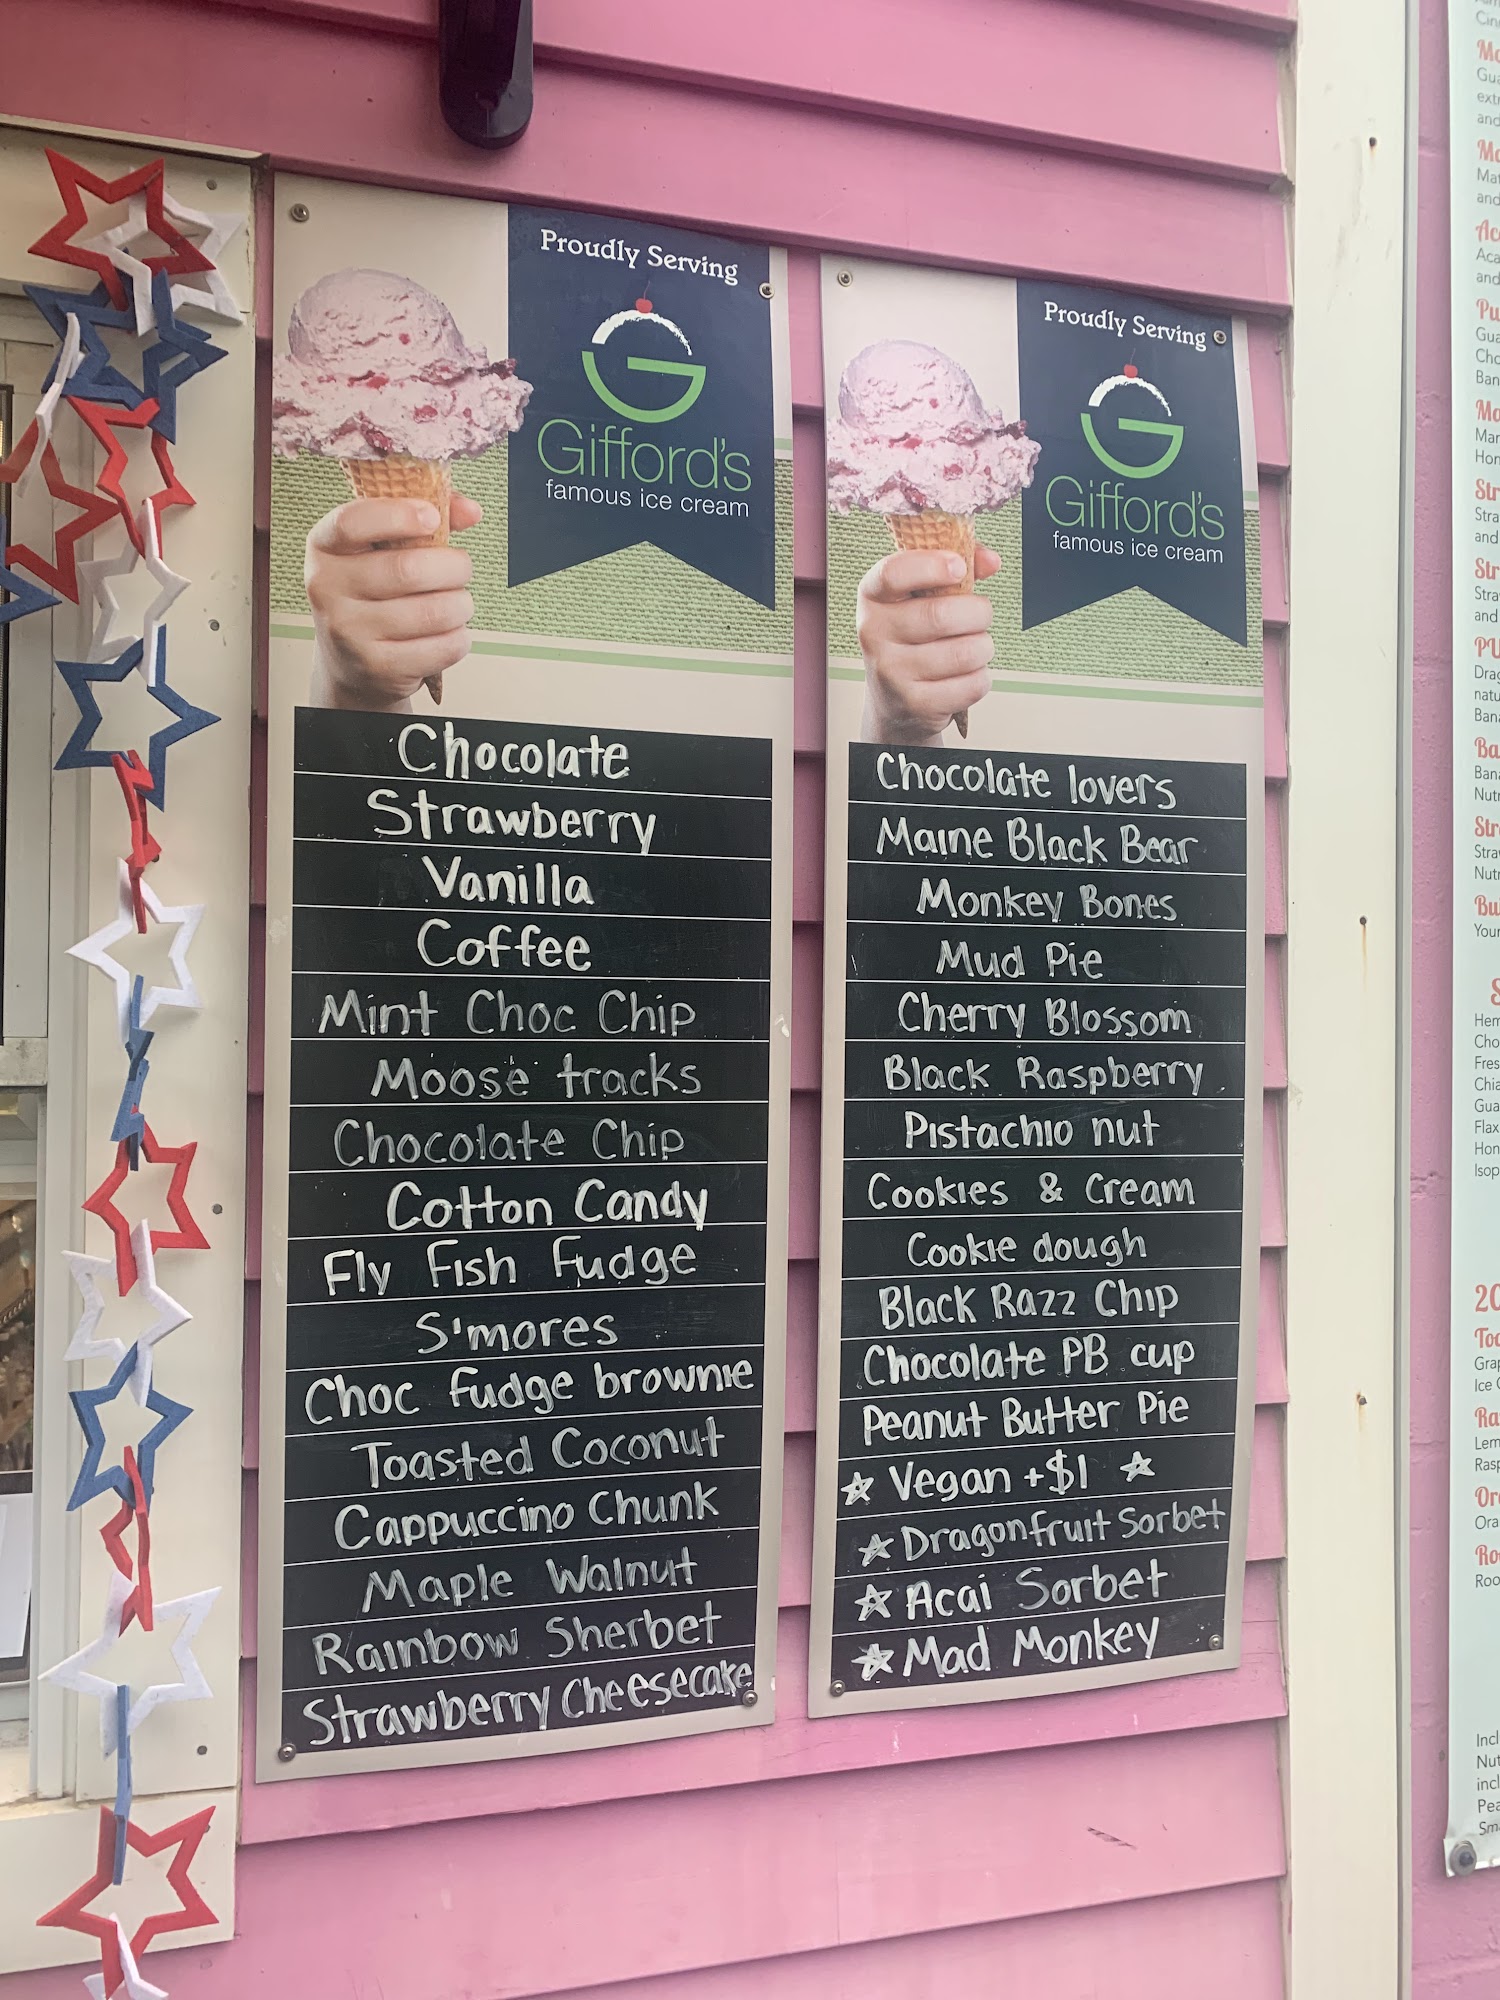 Proudly Serving
G
Gifford's
famous ice cream
Chocolate
Strawberry
Vanilla
Coffee
Mint Choc Chip
Moose tracks
Chocolate Chip
Cotton Candy
Fly Fish Fudge
S'mores
Choc fudge brownie
Toasted Coconut
Cappuccino Chunk
Maple Walnut
Rainbow Sherbet
Strawberry Cheesecake
Proudly Serving
G
Gifford's
famous ice cream
Chocolate lovers
Maine Black Bear
Monkey Bones
Mud Pie
Cherry Blossom
Black Raspberry
Pistachio nut
Cookies & Cream
Cookie dough
Black Razz Chip
Chocolate PB cup
Peanut Butter Pie
☆ Vegan +$1 ☆
☆ Dragonfruit Sorbet
☆ Acai Sorbet
☆ Mad Monkey